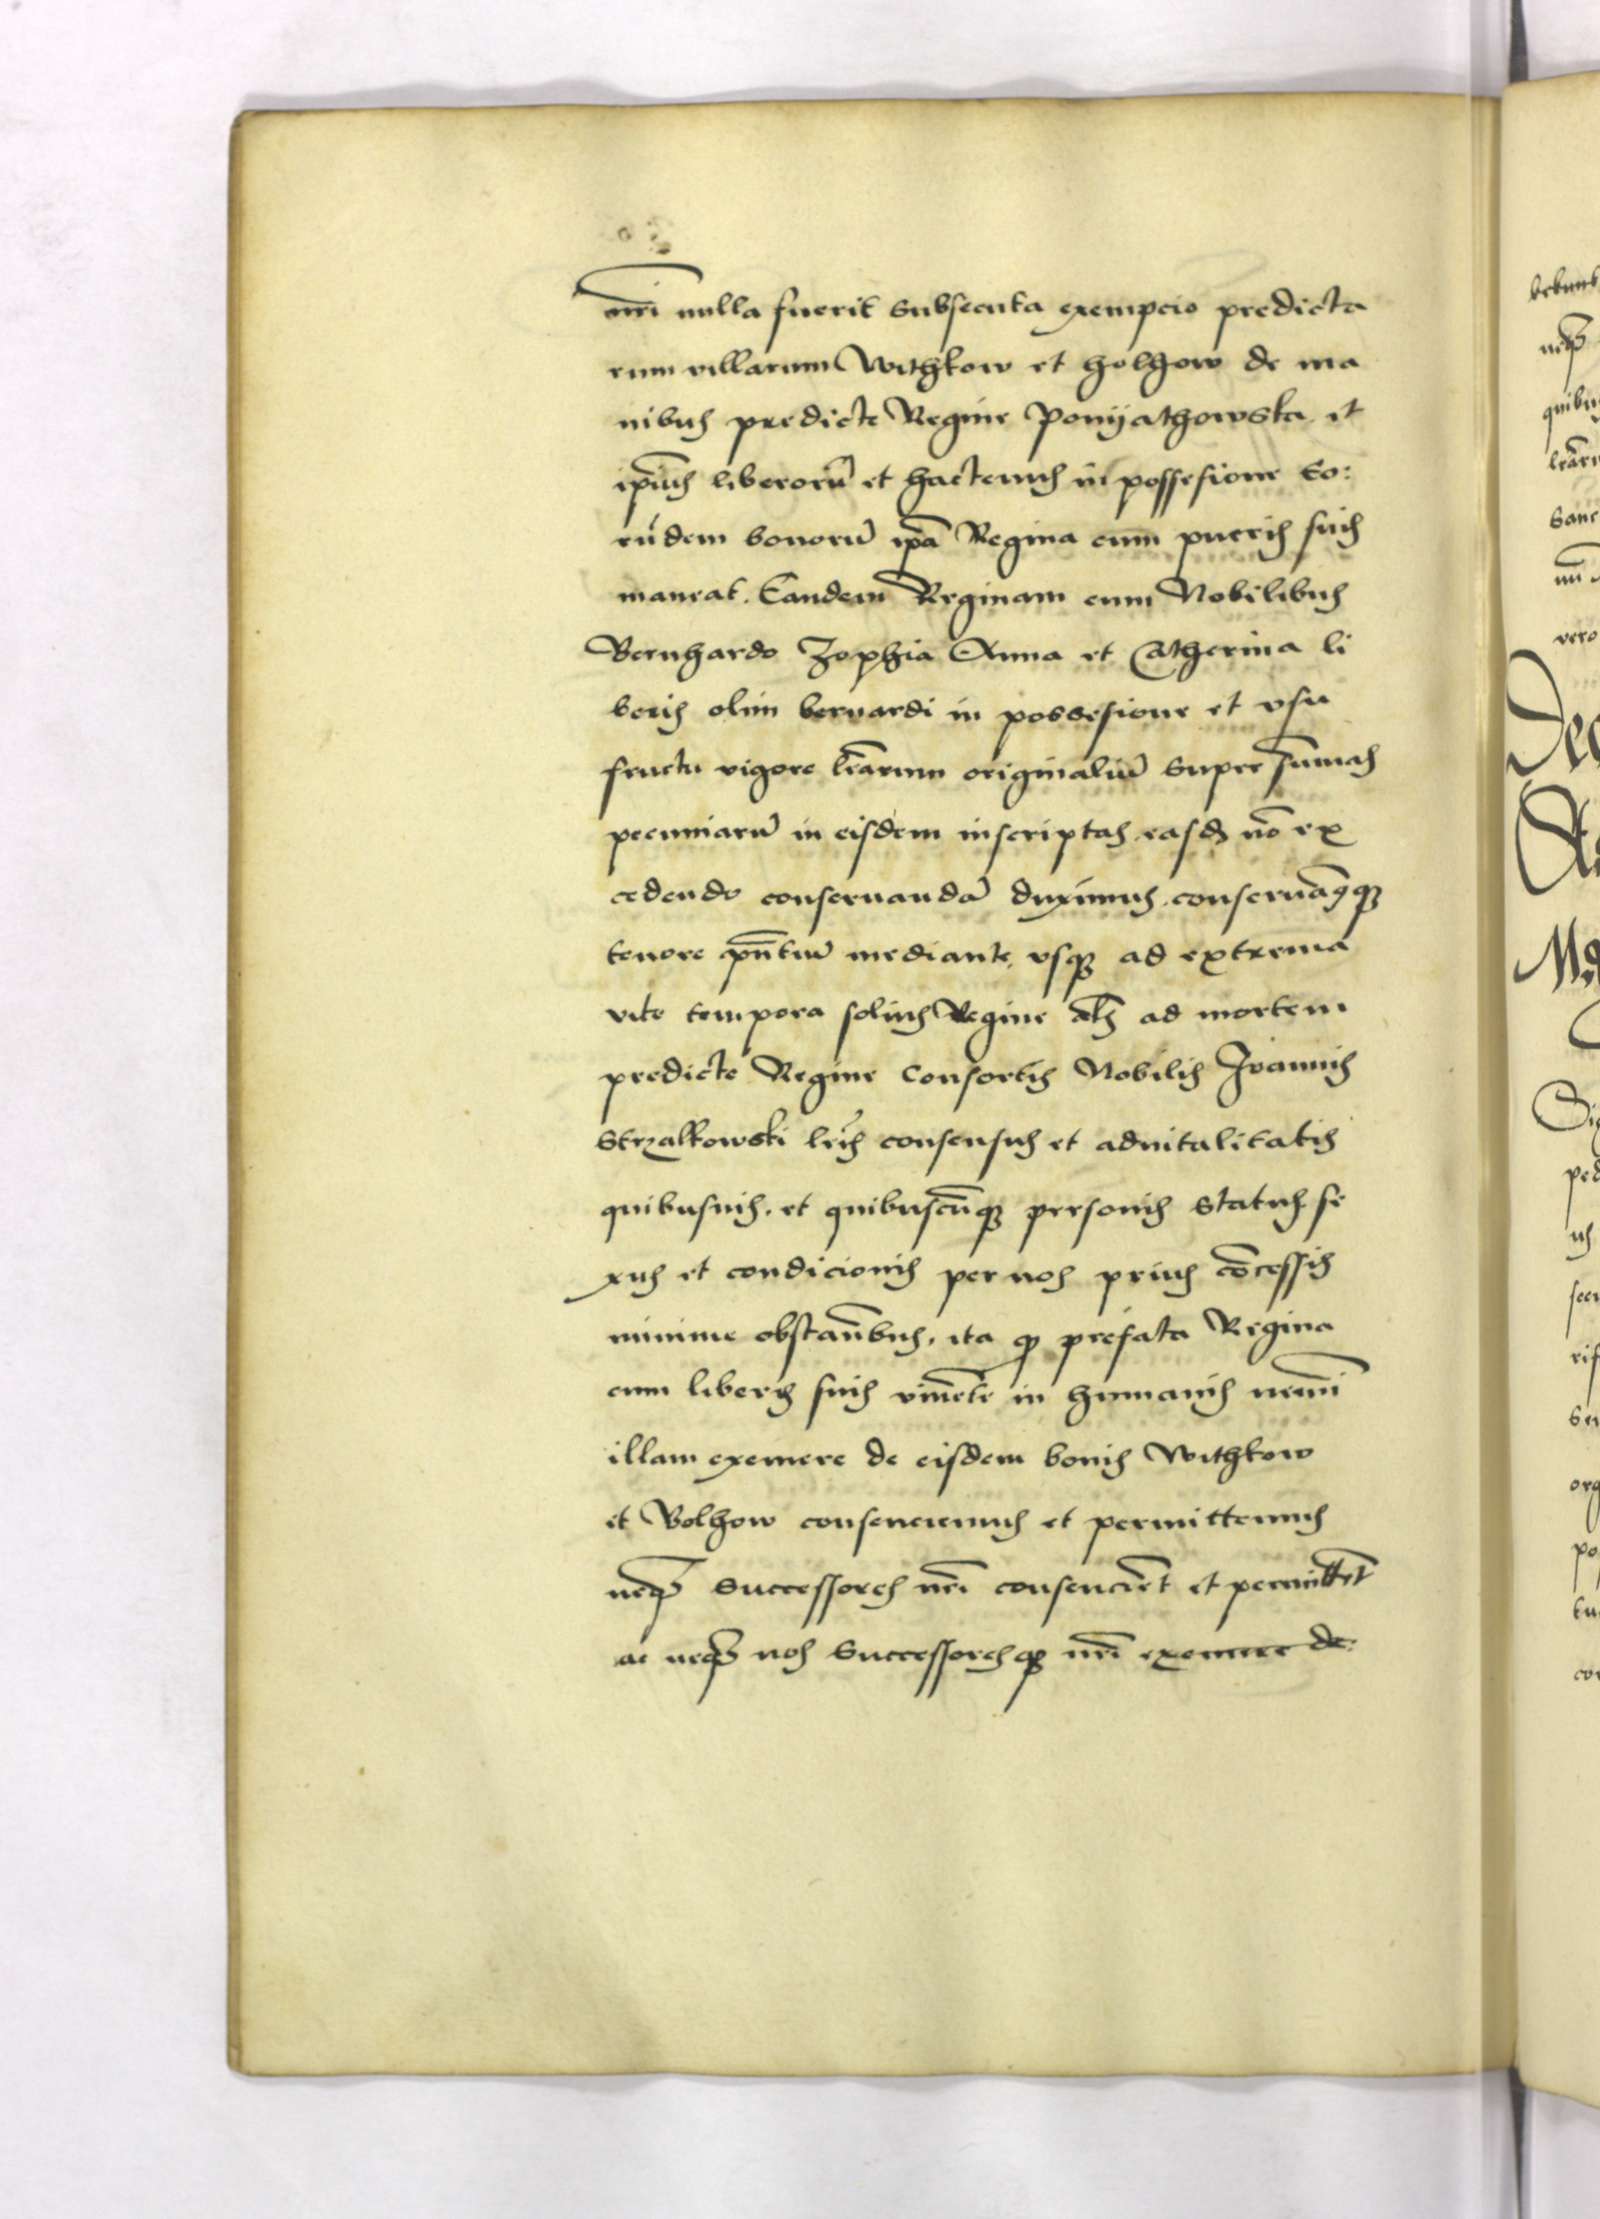 nr̃i nulla fuerit subsecuta exempcio predicta
rum villarum Withkow et Holhow de ma
nibus predicte Regine Ponijathowska et
ip̃ius liberorũ et hactenus in possesione eo:
rũdem bonorũ ip̃a Regina cum pueris suis
maneat. Eandem Reginam cum Nobilibus
Bernhardo Zophia Anna et Catherina li
beris olim bernardi in possesione et vsu
fructu vigore lr̃arum originaliũ super sum̃as
pecuniarũ in eisdem inscriptas easdȝ nõ ex
cedendo conseruandã duximus conseruamꝰqȝ
tenore pñtiũ mediante vsqȝ ad extrema
vite tempora solius Regine als̃ ad mortem
predicte Regine Consortis Nobilis Joannis
Strzalkowski lr̃is consensus et aduitalitatis
quibusuis. et quibuscũqȝ personis status se
xus et condicionis per nos prius cõcessis
minime obstañbus, ita ꝙ prefata Regina
cum liberis suis viuẽte in humanis nemĩ
illam exemere de eisdem bonis Withkow
et Bolhow consenciemus et permittemus
neqȝ Successores nr̃i consenciẽt et permittẽt
ac neqȝ nos Successoresqȝ nr̃i exemere de: